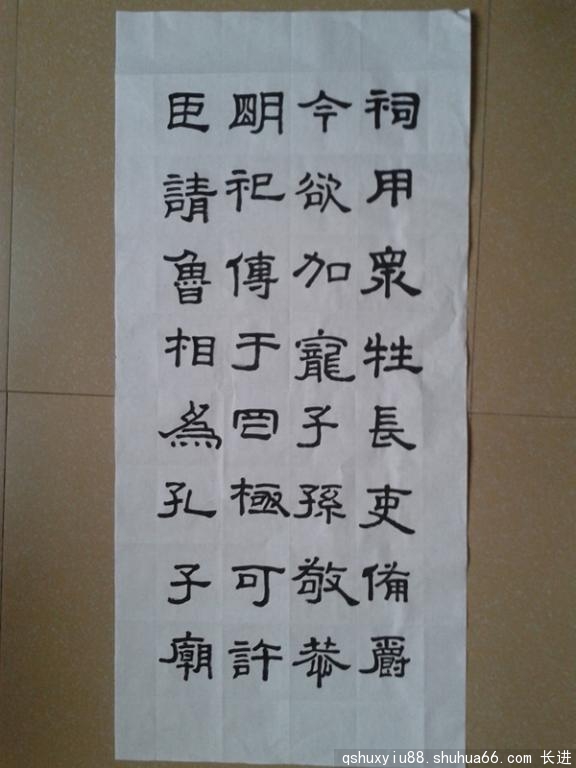 祠用眾牲長吏備爵
今欲加寵子孫敬恭
明祀傳于罔極可許
臣請魯相為孔子廟
qshuxyiu88.shuhua66.com 长进